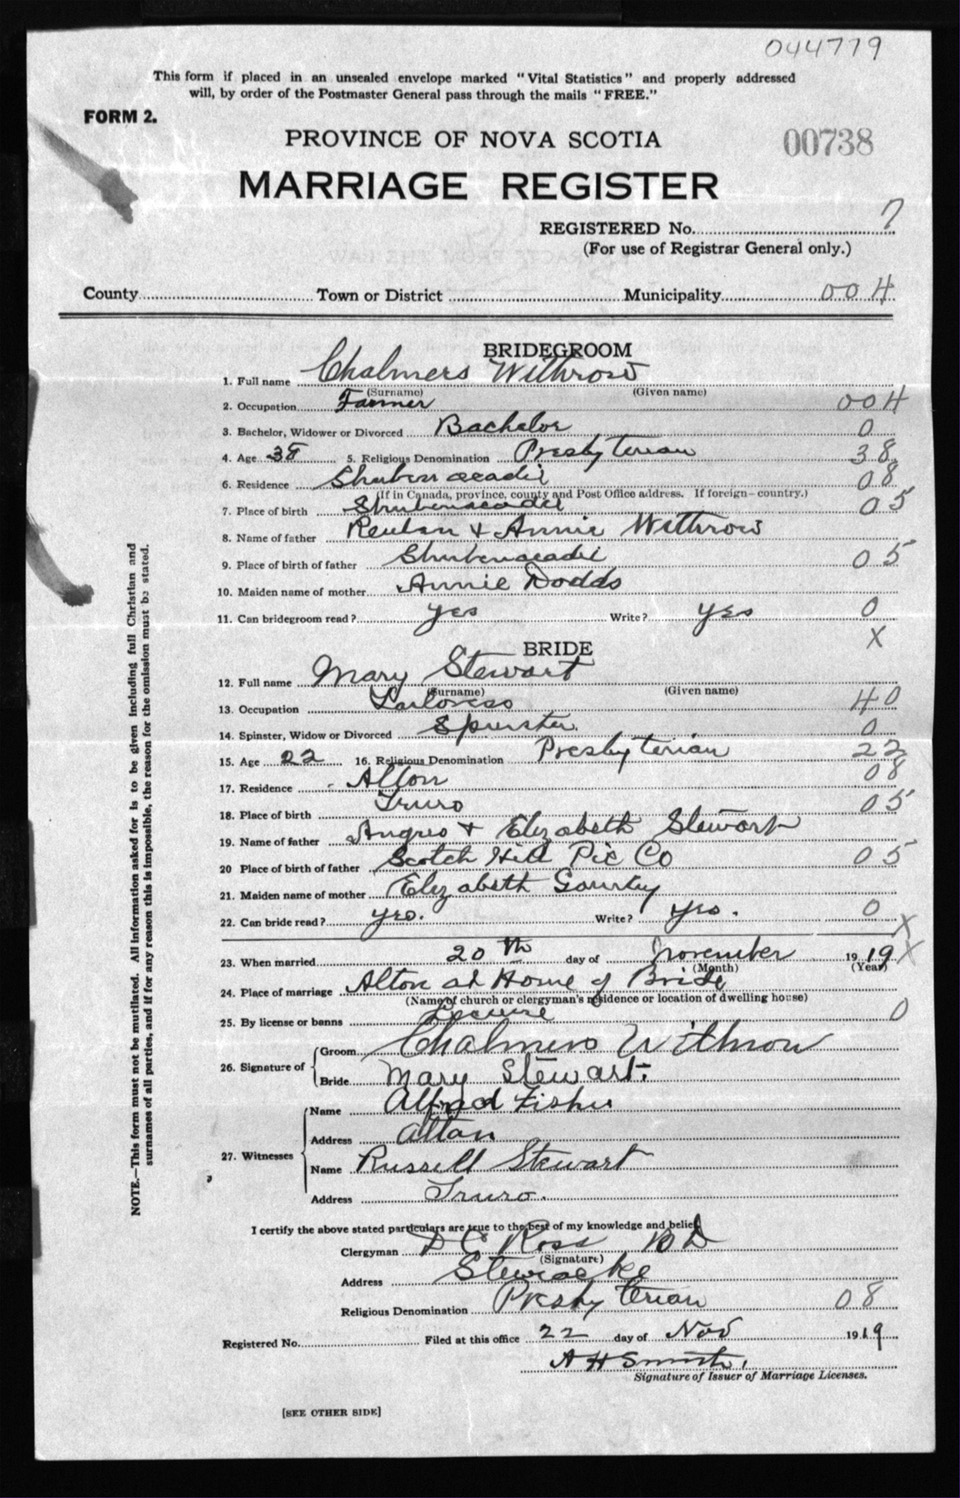 044779
This form if placed in an unsealed envelope marked "Vital Statistics" and properly addressed
will, by order of the Postmaster General pass through the mails "FREE."
FORM 2.
PROVINCE OF NOVA SCOTIA
00738
MARRIAGE REGISTER
REGISTERED No. 7
(For use of Registrar General only.)
County Town or District Municipality 004
BRIDEGROOM
1. Full name Chalmers Withrow
(Surname) (Given name)
2. Occupation Farmer 004
3. Bachelor, Widower or Divorced Bachelor 0
4. Age 38 5. Religious Denomination Presbyterian 38
6. Residence Shubenacadie 08
(If in Canada, province, county and Post Office address. If foreign—country.)
7. Place of birth Shubenacadie 05
8. Name of father Reuben & Annie Withrow
9. Place of birth of father Shubenacadie 05
10. Maiden name of mother Annie Dodds
11. Can bridegroom read? yes Write? yes 0
X
BRIDE
12. Full name Mary Stewart
(Surname) (Given name)
13. Occupation Tailoress 40
14. Spinster, Widow or Divorced Spinster 0
15. Age 22 16. Religious Denomination Presbyterian 22
17. Residence Alton 08
18. Place of birth Truro 05
19. Name of father Angus & Elizabeth Stewart
20 Place of birth of father Scotch Hill Pic Co 05
21. Maiden name of mother Elizabeth Gourley
22. Can bride read? yes. Write? yes. 0 X
23. When married 20th day of November 1919 X
(Month) (Year)
24. Place of marriage Alton at Home of Bride
(Name of church or clergyman's residence or location of dwelling house)
25. By license or banns License 0
26. Signature of Groom Chalmers Withrow
Bride Mary Stewart.
27. Witnesses Name Alfred Fisher
Address Alton
Name Russell Stewart
Address Truro.
I certify the above stated particulars are true to the best of my knowledge and belief
Clergyman D C Ross B D
(Signature)
Address Stewiacke
Religious Denomination Presbyterian 08
Registered No. Filed at this office 22 day of Nov 1919
A H Smith,
Signature of Issuer of Marriage Licenses.
[SEE OTHER SIDE]
NOTE.—This form must not be mutilated. All information asked for is to be given including full Christian and
surnames of all parties, and if for any reason this is impossible, the reason for the omission must be stated.